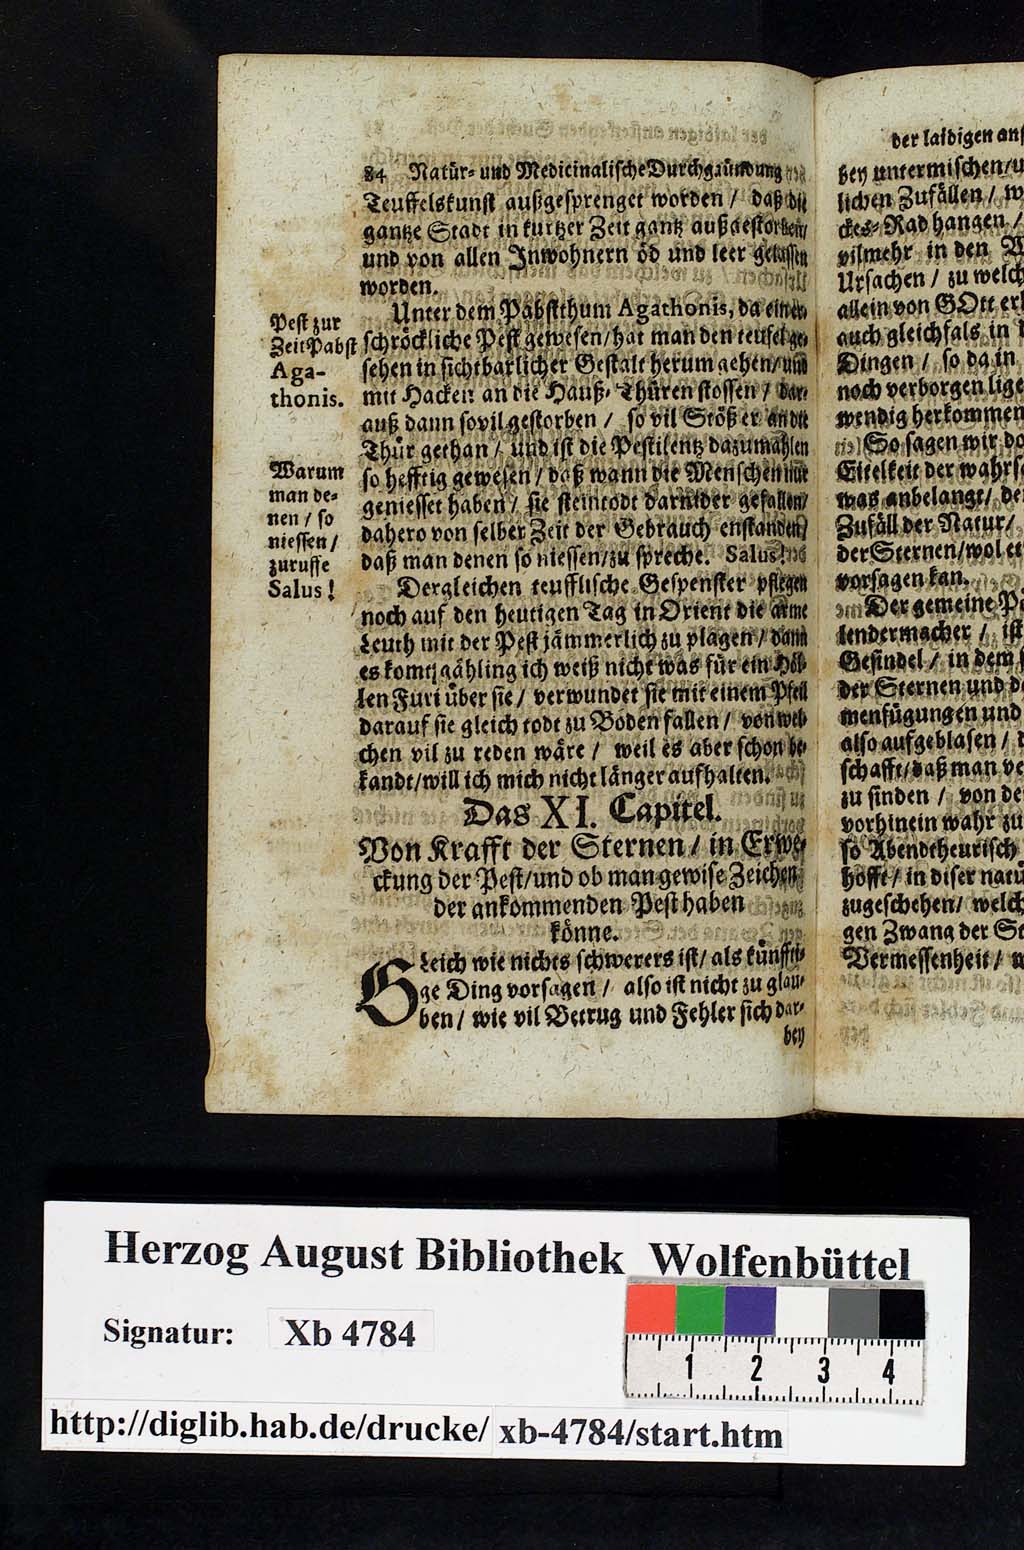 84 Natür- und Medicinalische Durchgründung
Teuffelskunst außgesprenget worden / daß die
gantze Stadt in kurtzer Zeit gantz außgestorben/
und von allen Inwohnern öd und leer gelassen
worden.
Unter dem Pabstthum Agathonis, da eine
schröckliche Pest gewesen/ hat man den teufel ge-
sehen in sichtbarlicher Gestalt herum gehen/ und
mit Hacken an die Hauß-Thüren stossen / dar-
auß dann sovil gestorben / so vil Stöß er an die
Thür gethan / und ist die Pestilentz dazumahlen
so hefftig gewesen / daß wann die Menschen nur
geniesset haben / sie steintodt darnider gefallen/
dahero von selber Zeit der Gebrauch enstanden/
daß man denen so niessen/zu spreche. Salus!
Dergleichen teufflische Gespenster pflegen
noch auf den heutigen Tag in Orient die arme
Leuth mit der Pest jämmerlich zu plagen / dann
es komt gähling ich weiß nicht was für ein Höl-
len Furi über sie / verwundet sie mit einem Pfeil
darauf sie gleich todt zu Boden fallen / von wel-
chen vil zu reden wäre / weil es aber schon be-
kandt/will ich mich nicht länger aufhalten.
Pest zur
Zeit Pabst
Aga-
thonis.
Warum
man de-
nen / so
niessen /
zuruffe
Salus!
Das XI. Capitel.
Von Krafft der Sternen / in Erwe-
ckung der Pest/und ob man gewise Zeichen
der ankommenden Pest haben
könne.
Gleich wie nichts schwerers ist/ als künffti-
ge Ding vorsagen / also ist nicht zu glau-
ben / wie vil Betrug und Fehler sich dar-
bey
der laidigen
bey untermischen/
lichen Zufällen /
ckes-Rad hangen /
vilmehr in den
Ursachen / zu
allein von GOtt
auch gleichfals in
Dingen / so da in
noch verborgen
wendig herkommen
So sagen wir
Eitelkeit der
was anbelangt/
Zufäll der Natur/
der Sternen/wol
vorsagen kan.
Der gemeine
lendermacher / ist
Gesindel / in dem
der Sternen und
menfügungen und
also aufgeblasen /
schafft/daß man
zu finden / von
vorhinein wahr zu
so Abendtheurisch
hofft / in diser
zugeschehen/
gen Zwang der
Vermessenheit /
Herzog August Bibliothek Wolfenbüttel
Signatur: Xb 4784
1 2 3 4
http://diglib.hab.de/drucke/ xb-4784/start.htm